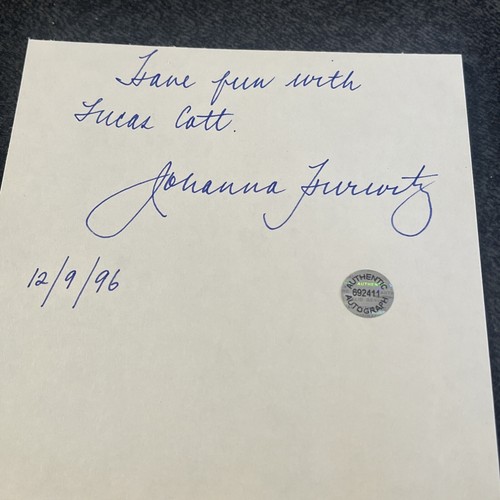 Have fun with
Lucas Cott.
Johanna Hurwitz
12/9/96
AUTHENTIC
692411
AUTOGRAPH